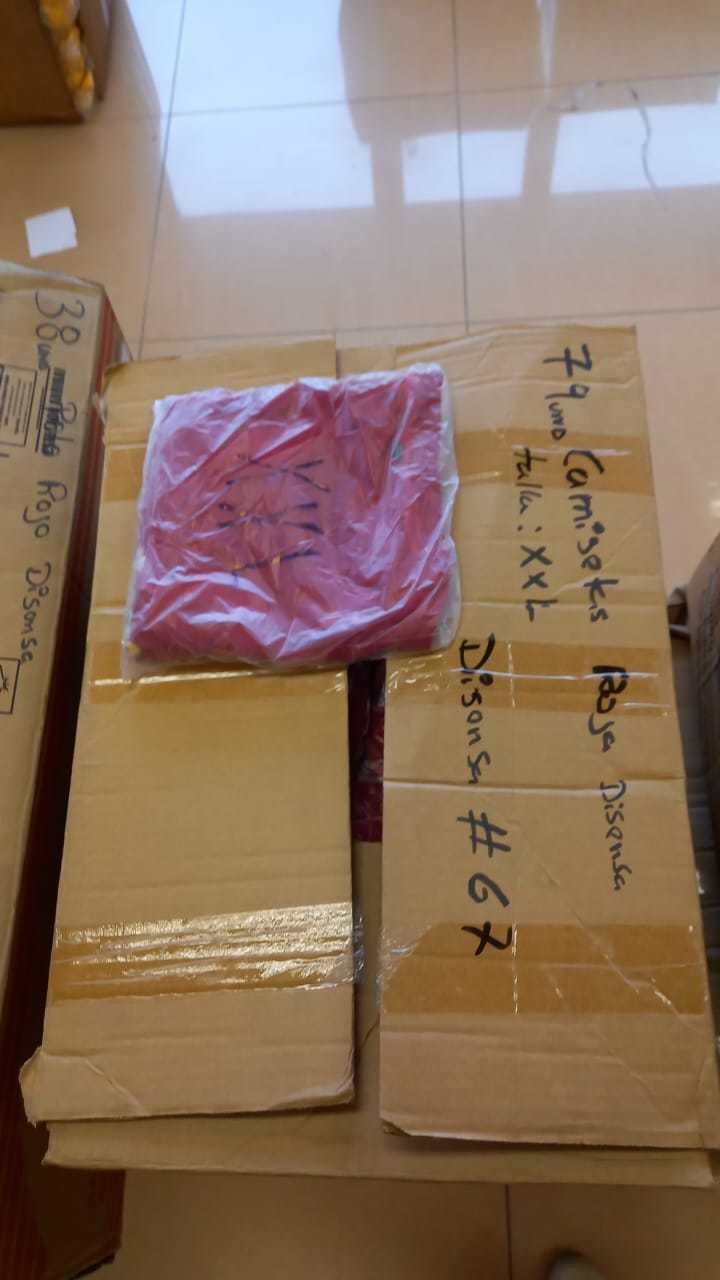 79 UND Camisetas Roja Disensa
talla: XXL
Disensa # 67
XXL
38 UND
Rojo Disensa